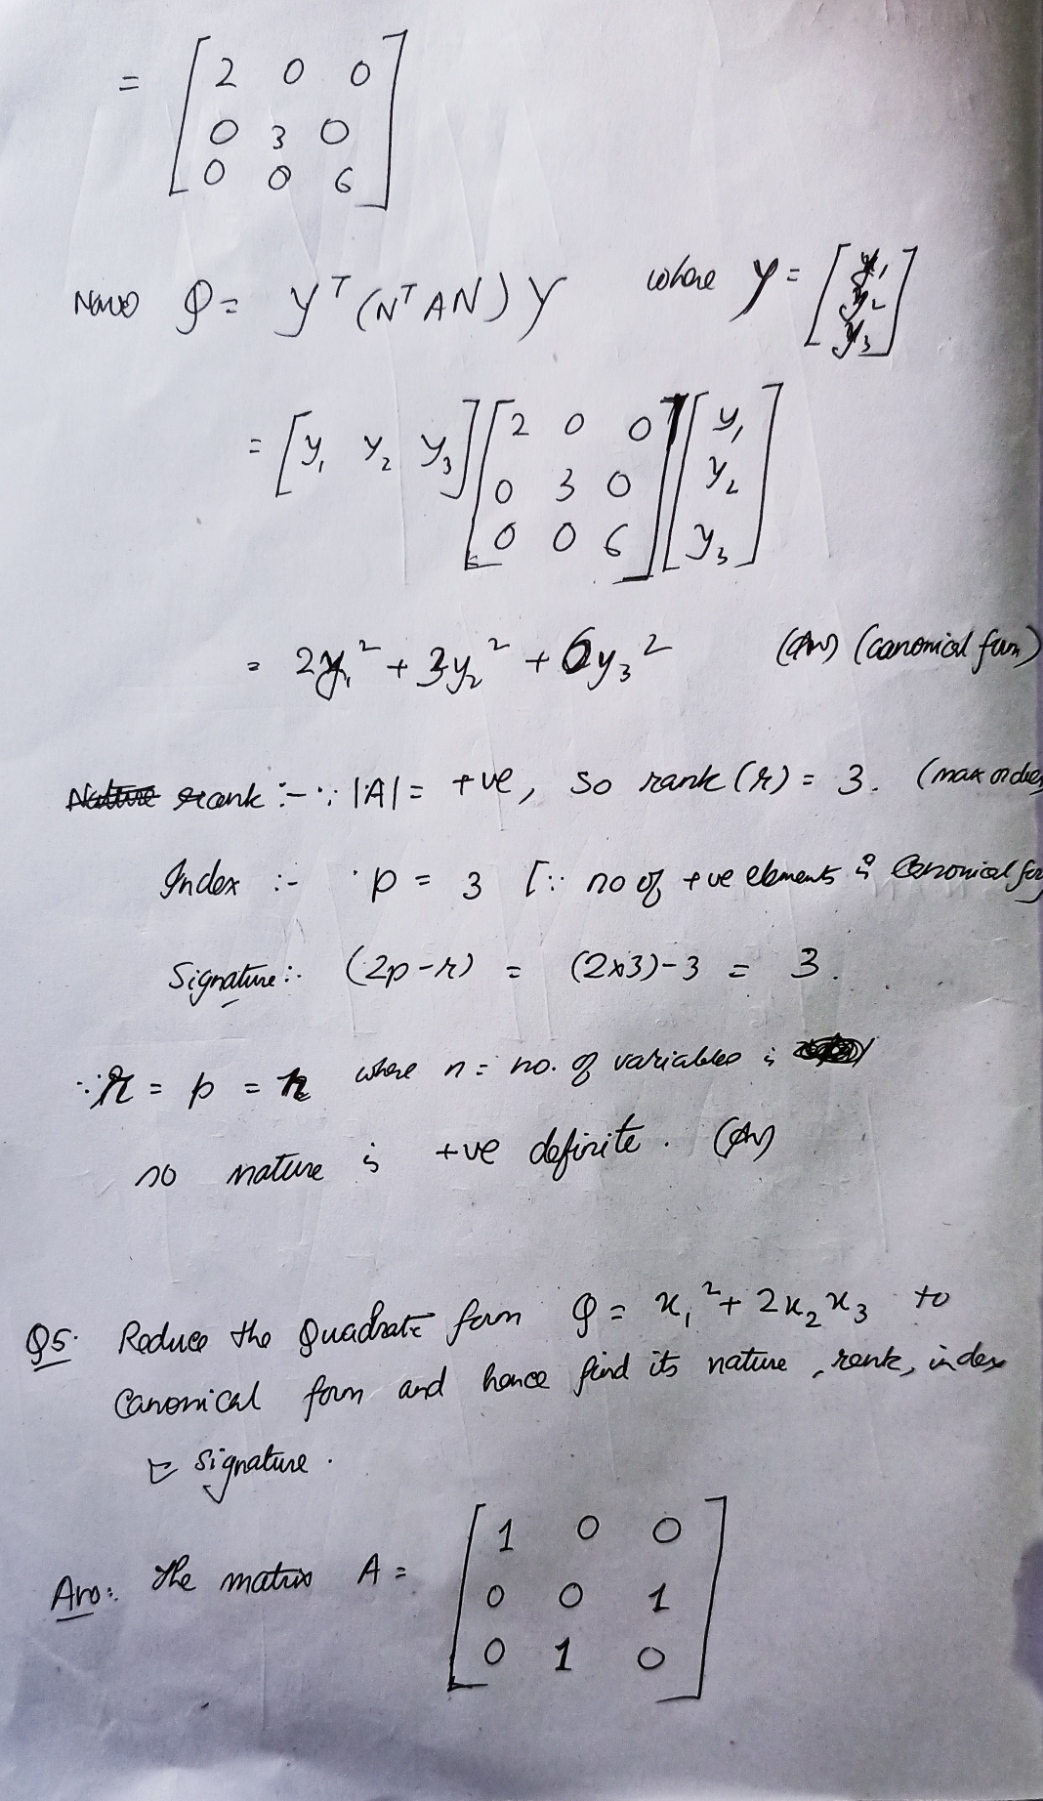 = [ 2 0 0
0 3 0
0 0 6 ]
Now Q = Y^T (N^T AN) Y where Y = [ y₁
y₂
y₃ ]
= [ y₁ y₂ y₃ ] [ 2 0 0
0 3 0
0 0 6 ] [ y₁
y₂
y₃ ]
= 2y₁² + 3y₂² + 6y₃² (Ans) (canonical form)
rank :- ∵ |A| = +ve, so rank (r) = 3. (max order
Index :- p = 3 [∵ no of +ve elements is canonical for
Signature:- (2p-r) = (2×3)-3 = 3.
∵ r = p = n where n = no. of variables is
so nature is +ve definite. (Ans)
Q5. Reduce the Quadratic form Q = x₁² + 2x₂x₃ to
Canonical form and hence find its nature, rank, index
& signature.
Ans: The matrix A = [ 1 0 0
0 0 1
0 1 0 ]